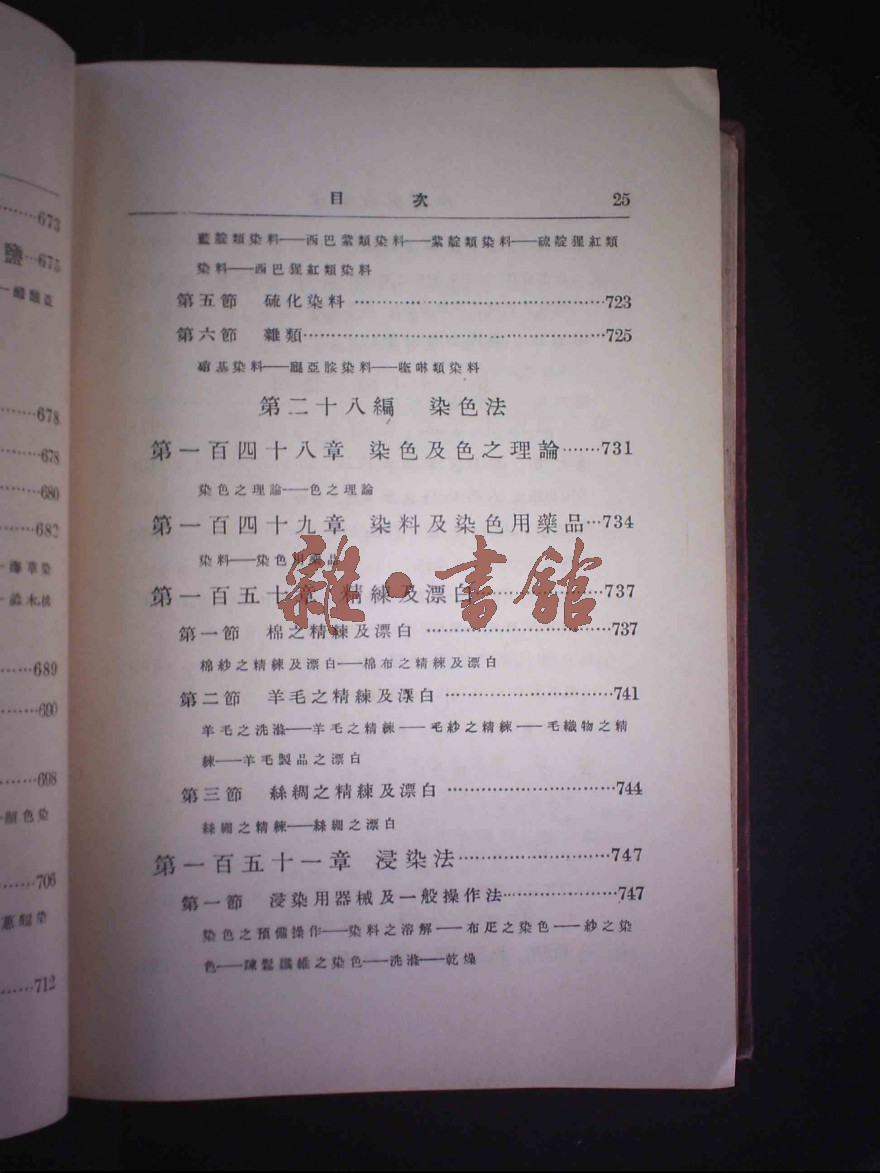 673
鹽…675
678
678
680
682
689
690
698
706
712
目次 25
藍靛類染料——西巴紫類染料——紫靛類染料——硫靛猩紅類
染料——西巴猩紅類染料
第五節 硫化染料…723
第六節 雜類…725
硝基染料——染料——啉類染料
第二十八編 染色法
第一百四十八章 染色及色之理論…731
染色之理論——色之理論
第一百四十九章 染料及染色用藥品…734
染料——染色用藥品
第一百五十章 精練及漂白…737
第一節 棉之精練及漂白…737
棉紗之精練及漂白——棉布之精練及漂白
第二節 羊毛之精練及漂白…741
羊毛之洗滌——羊毛之精練——毛紗之精練——毛織物之精
練——羊毛製品之漂白
第三節 絲綢之精練及漂白…744
絲綢之精練——絲綢之漂白
第一百五十一章 浸染法…747
第一節 浸染用器械及一般操作法…747
染色之預備操作——染料之溶解——布疋之染色——紗之染
色——疎鬆纖維之染色——洗滌——乾燥
雜·書館